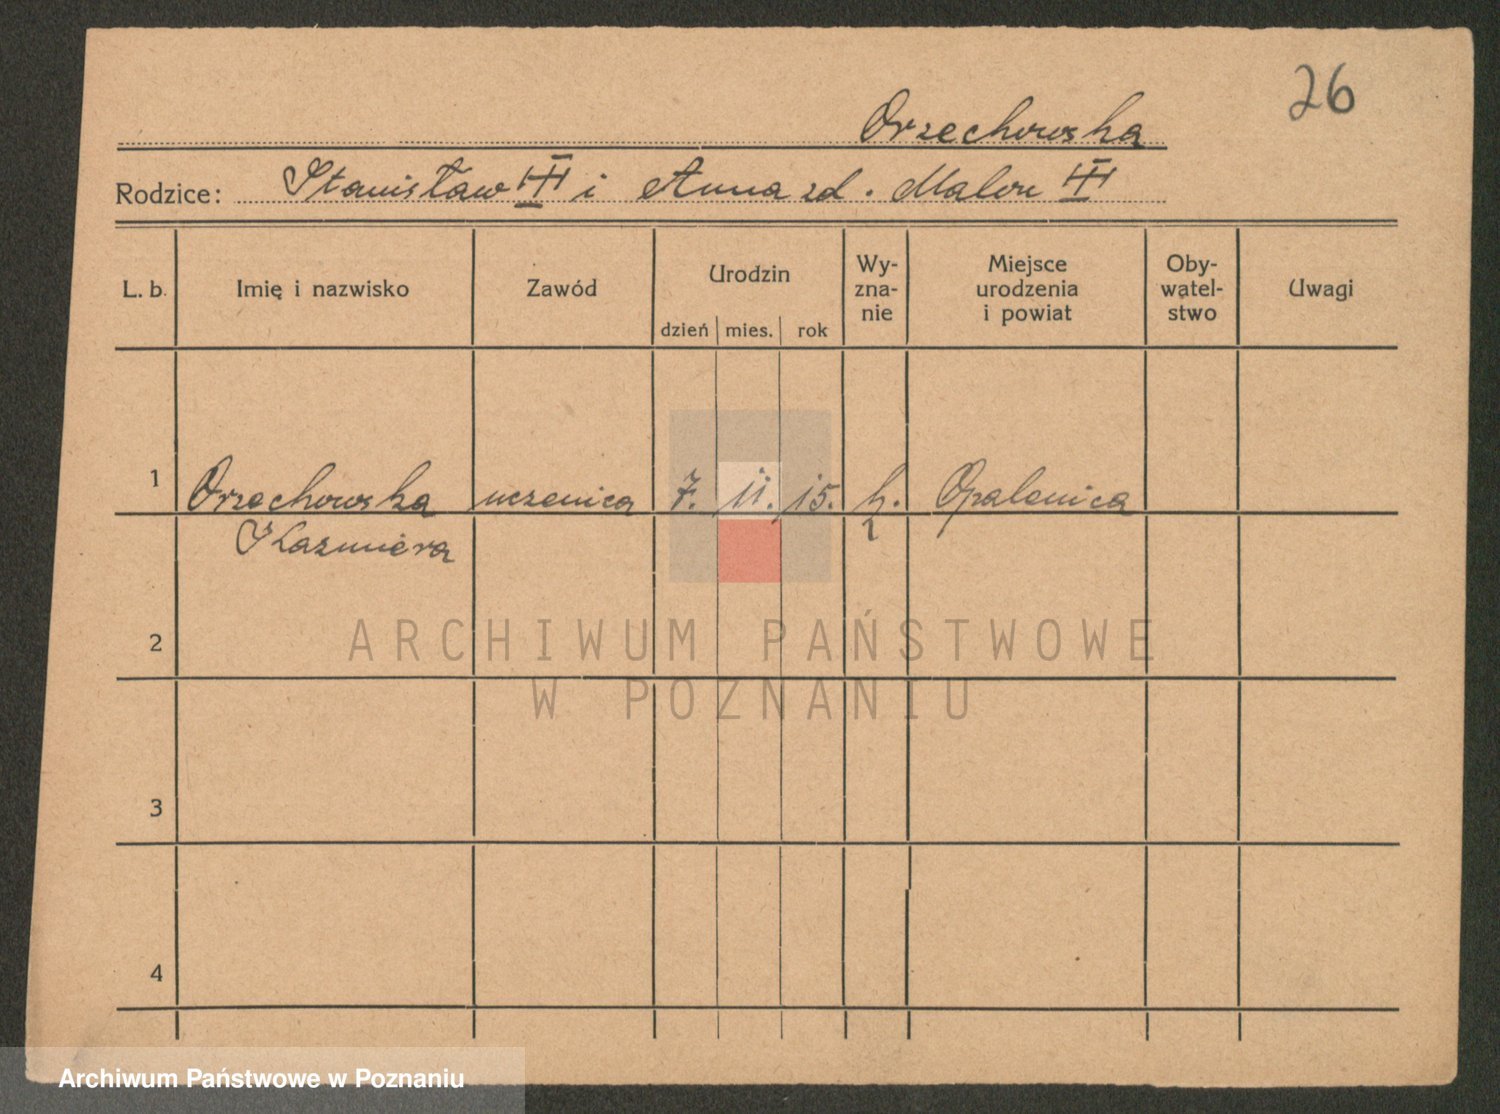 26
Orzechowska
Rodzice: Stanisław i Anna zd.
L. b. Imię i nazwisko Zawód Urodzin dzień mies. rok Wy-zna-nie Miejsce urodzenia i powiat Oby-watel-stwo Uwagi
1 Orzechowska uczenica 7. 11. 15. k. Opalenica
Kazmiera
2
3
4
ARCHIWUM PAŃSTWOWE
W POZNANIU
Archiwum Państwowe w Poznaniu